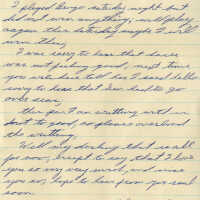 I played Bingo saturday night but
did not win anything, will play
again this saturday maybe I will
win then,
I was sorry to hear that
was not feeling good, next time
you write her tell her I said hello
sorry to hear that Dear had to go
over seas,
this pen I am writting with is
not to good, so please overlook
the writting.
Well my darling that is all
for now, except to say that I love
you so very much, and miss
you so, hope to hear from you real
soon